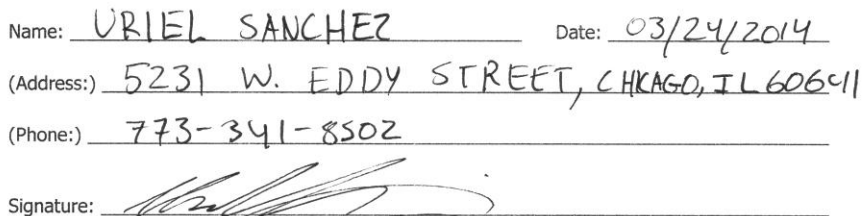 Name: URIEL SANCHEZ Date: 03/24/2014
(Address:) 5231 W. EDDY STREET, CHICAGO, IL 60641
(Phone:) 773-341-8502
Signature: